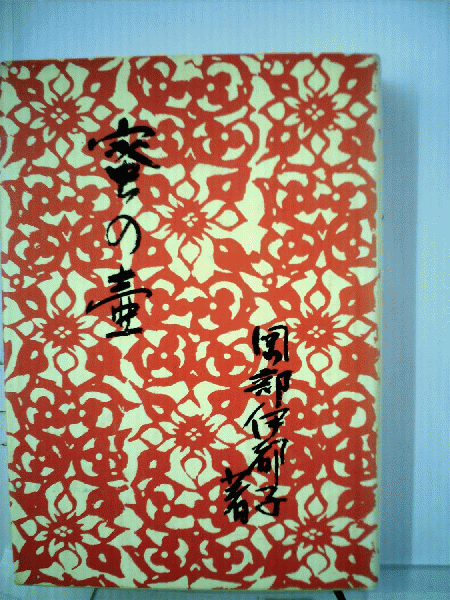 蜜の壷
岡部伊都子著